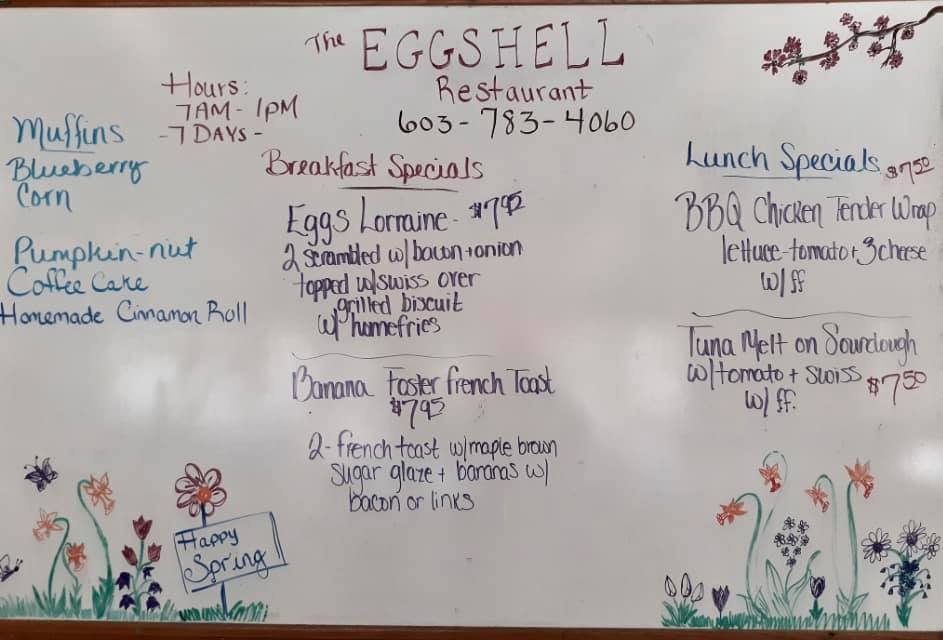 The EGGSHELL
Restaurant
603-783-4060
Hours:
7AM-1PM
-7 DAYS-
Muffins
Blueberry
Corn
Pumpkin-nut
Coffee Cake
Homemade Cinnamon Roll
Breakfast Specials
Eggs Lorraine - $7.95
2 scrambled w/bacon+onion
topped w/swiss over
grilled biscuit
w/ homefries
Banana Foster french Toast
$7.95
2-french toast w/maple brown
sugar glaze + bananas w/
bacon or links
Lunch Specials
$7.50
BBQ Chicken Tender Wrap
lettuce-tomato+3cheese
w/ff
Tuna Melt on Sourdough
w/tomato + swiss $7.50
w/ ff.
Happy
Spring